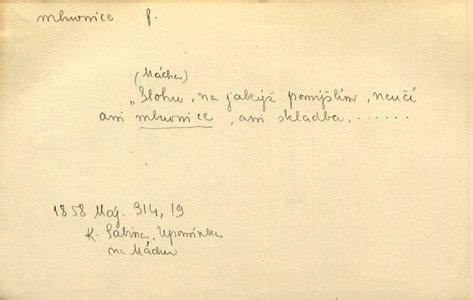 mluvnice f.
(Mácha)
„Slohu, na jakýž pomýšlím, neučí
ani mluvnice, ani skladba.......
1858 Máj. 314, 19
K. Sabina, Upomínka
na Máchu